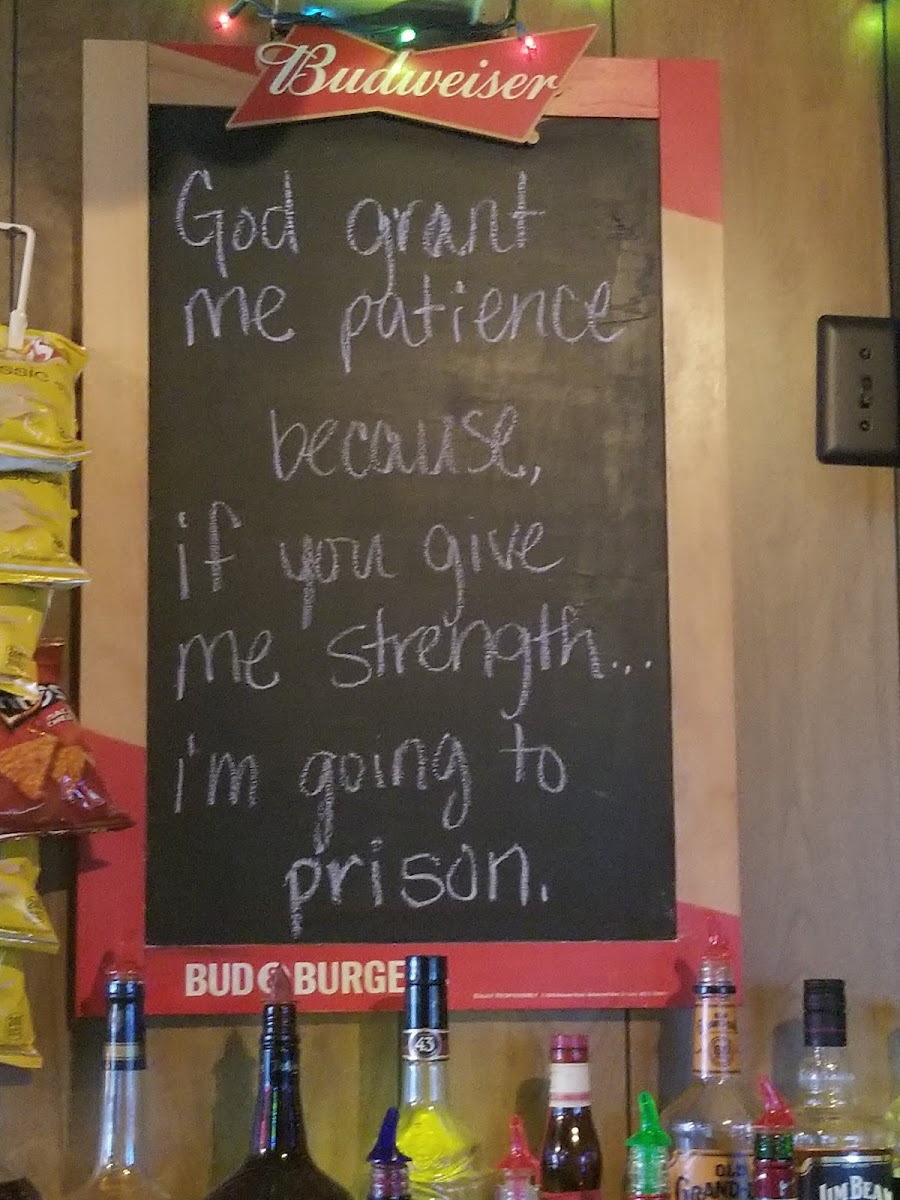 Budweiser
God grant
me patience
because,
if you give
me strength...
i'm going to
prison.
BUD & BURGE
43
OLD
GRAND
JIM BEAM